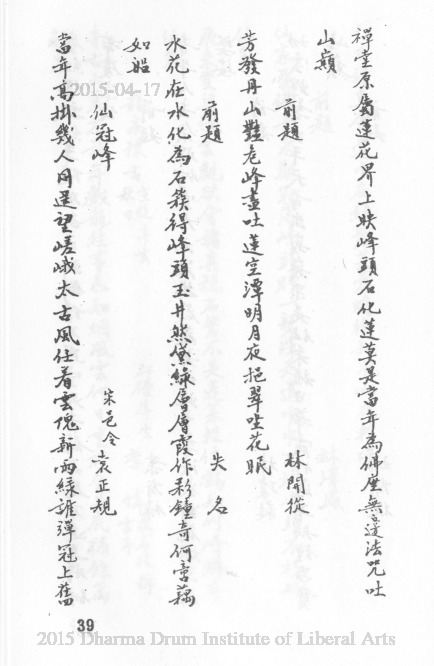 禪堂原屬蓮花界上映峰頭石化蓮莫是當年為佛座無邊法咒吐
山巔
前題 林開從
芳發丹山豔老峰盡吐蓮空潭明月夜挹翠坐花眠
前題 失名
水花在水化為石簇得峰頭玉井然黛綠層層霞作彩鐘奇何啻藕
如船
仙冠峰 宋邑令袁正規
當年高掛幾人同遙望嵯峨太古風任着雲傀新雨綠誰彈冠上舊
39
2015-04-17
2015 Dharma Drum Institute of Liberal Arts